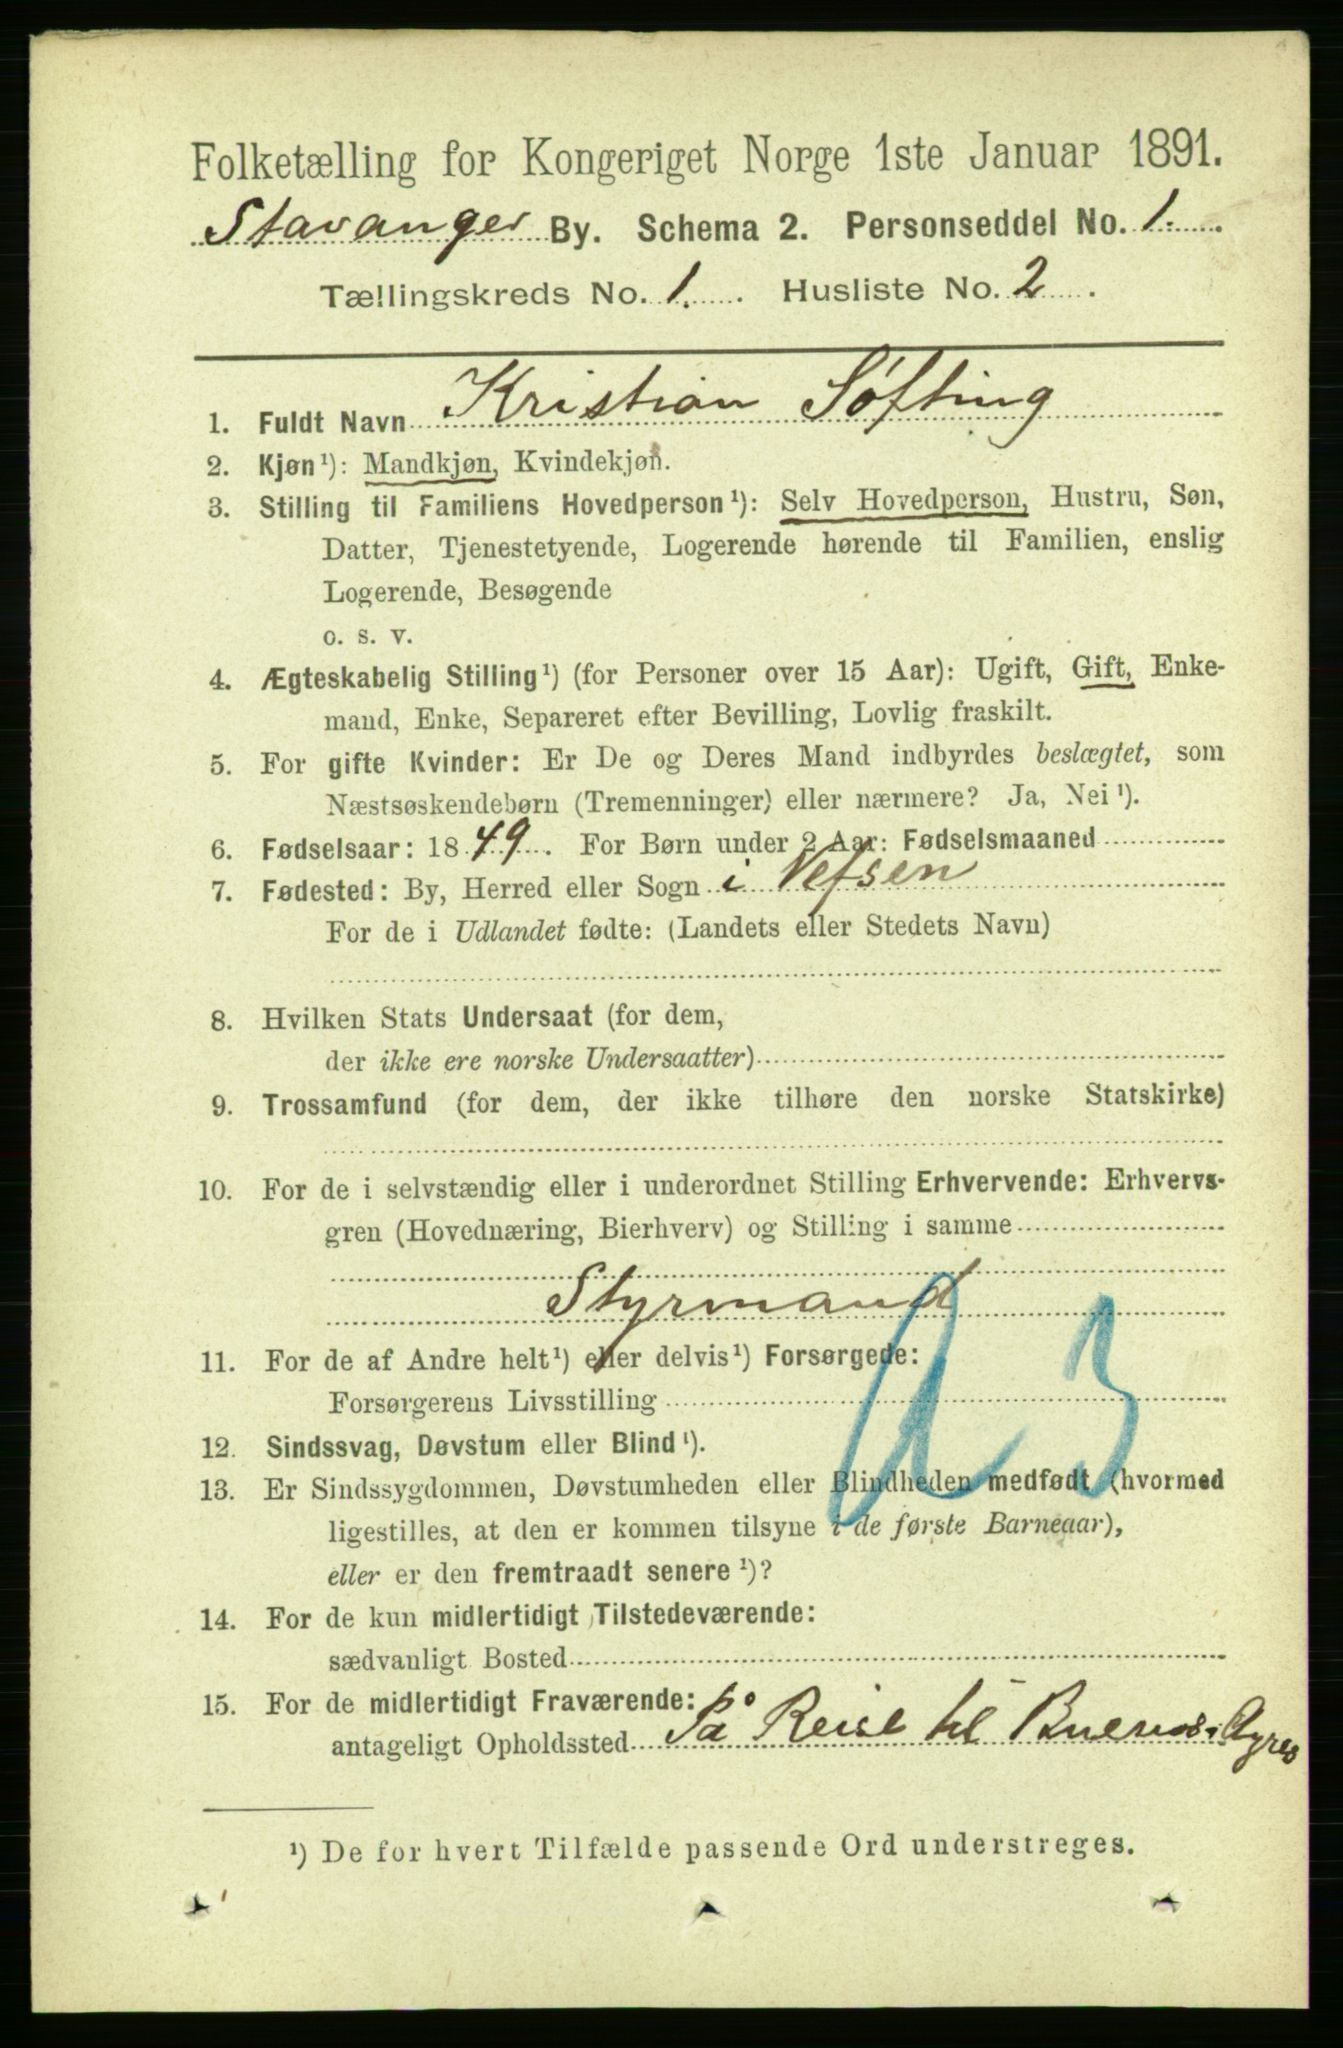 Folketælling for Kongeriget Norge 1ste Januar 1891.
Stavanger By. Schema 2. Personseddel No. 1.
Tællingskreds No. 1. Husliste No. 2.
1. Fuldt Navn Kristian Søfting
2. Kjøn¹): Mandkjøn, Kvindekjøn.
3. Stilling til Familiens Hovedperson¹): Selv Hovedperson, Hustru, Søn,
Datter, Tjenestetyende, Logerende hørende til Familien, enslig
Logerende, Besøgende
o. s. v.
4. Ægteskabelig Stilling¹) (for Personer over 15 Aar): Ugift, Gift, Enke-
mand, Enke, Separeret efter Bevilling, Lovlig fraskilt.
5. For gifte Kvinder: Er De og Deres Mand indbyrdes beslægtet, som
Næstsøskendebørn (Tremenninger) eller nærmere? Ja, Nei¹).
6. Fødselsaar: 1849. For Børn under 2 Aar: Fødselsmaaned
7. Fødested: By, Herred eller Sogn i Vefsen
For de i Udlandet fødte: (Landets eller Stedets Navn)
8. Hvilken Stats Undersaat (for dem,
der ikke ere norske Undersaatter)
9. Trossamfund (for dem, der ikke tilhøre den norske Statskirke)
10. For de i selvstændig eller i underordnet Stilling Erhvervende: Erhvervs-
gren (Hovednæring, Bierhverv) og Stilling i samme
Styrmand
11. For de af Andre helt¹) eller delvis¹) Forsørgede:
Forsørgerens Livsstilling
12. Sindssvag, Døvstum eller Blind¹).
13. Er Sindssygdommen, Døvstumheden eller Blindheden medfødt (hvormed
ligestilles, at den er kommen tilsyne i de første Barneaar),
eller er den fremtraadt senere¹)?
14. For de kun midlertidigt Tilstedeværende:
sædvanligt Bosted
15. For de midlertidigt Fraværende:
antageligt Opholdssted På Reise til Buenos-Ayres
¹) De for hvert Tilfælde passende Ord understreges.